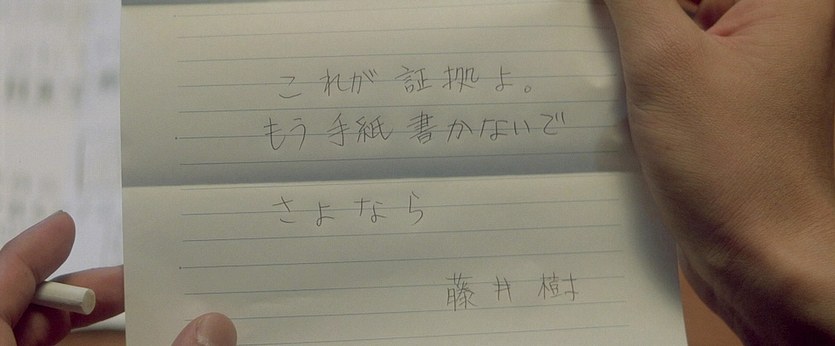 これが証拠よ。
もう手紙書かないで
さよなら
藤井樹